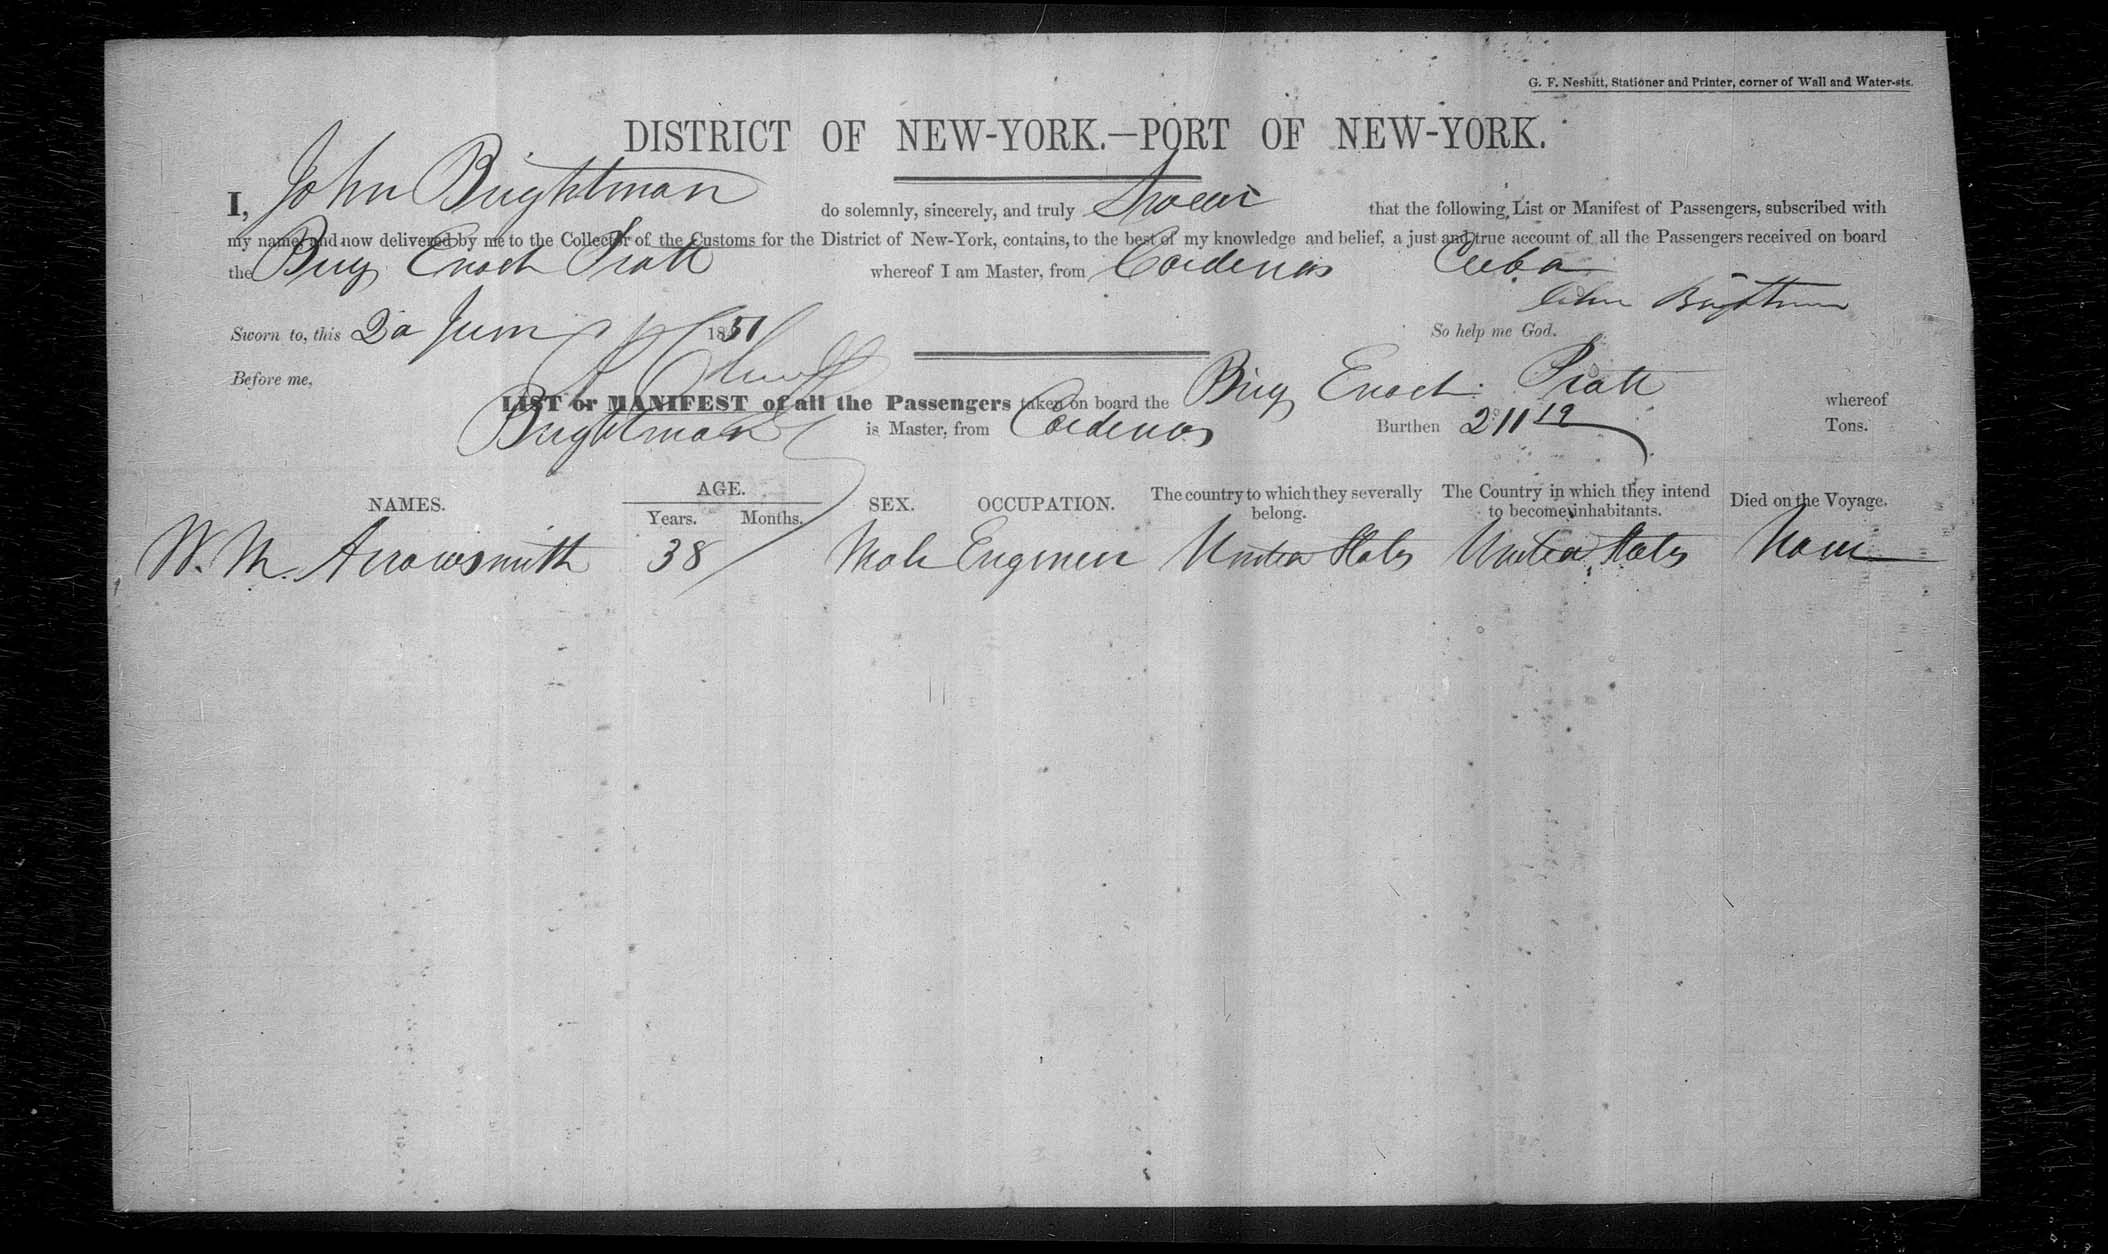 G. F. Nesbitt, Stationer and Printer, corner of Wall and Water-sts.
DISTRICT OF NEW-YORK.—PORT OF NEW-YORK.
I, John Brightman do solemnly, sincerely, and truly Swear that the following List or Manifest of Passengers, subscribed with
my name, and now delivered by me to the Collector of the Customs for the District of New-York, contains, to the best of my knowledge and belief, a just and true account of all the Passengers received on board
the Brig Enoch Pratt whereof I am Master, from Cardenas Cuba
John Brightman
Sworn to, this 1851 So help me God.
Before me,
LIST or MANIFEST of all the Passengers taken on board the Brig Enoch Pratt whereof
Brightman is Master, from Cardenas Burthen 211 Tons.
NAMES. AGE. SEX. OCCUPATION. The country to which they severally belong. The Country in which they intend to become inhabitants. Died on the Voyage.
Years. Months.
W. M. Arrowsmith 38 Male Engineer United States United States None